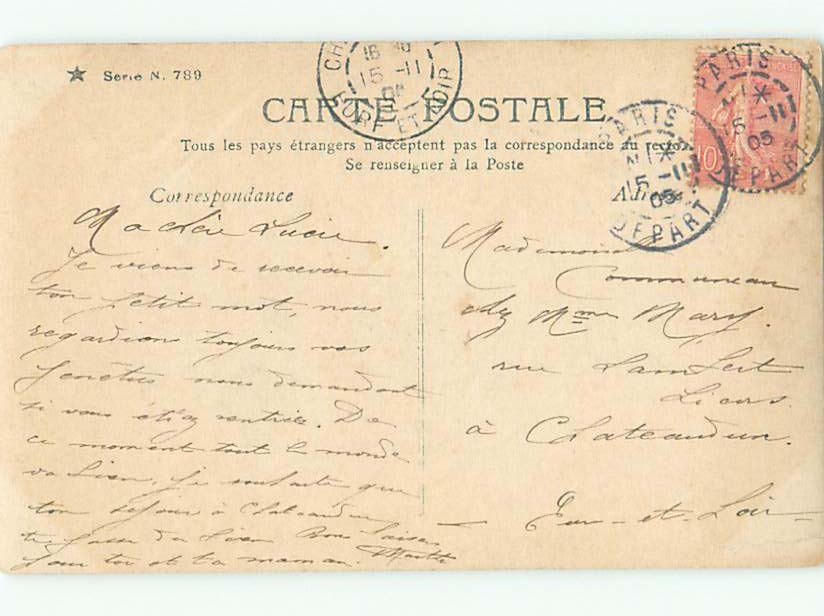 ★ Serie N. 789
CARTE POSTALE
Tous les pays étrangers n'acceptent pas la correspondance au recto
Se renseigner à la Poste
Correspondance
Ma chère Lucie.
Je viens de recevoir
ton petit mot, nous
regardions toujours vos
fenêtres nous demandant
si vous étiez rentrée. De
ce moment tout le monde
va bien, je souhaite que
ton séjour à Chateaudun
te fasse du bien Bons baisers
pour toi et ta maman. Marthe
Adresse
Mademoiselle
Communeau
chez Mme Mary.
rue Lambert
Licors.
à Chateaudun.
Eure-et-Loir
PARIS
15 -11
05
DEPART
PARIS
15 -11
05
DEPART
15 -11
EURE ET LOIR
10